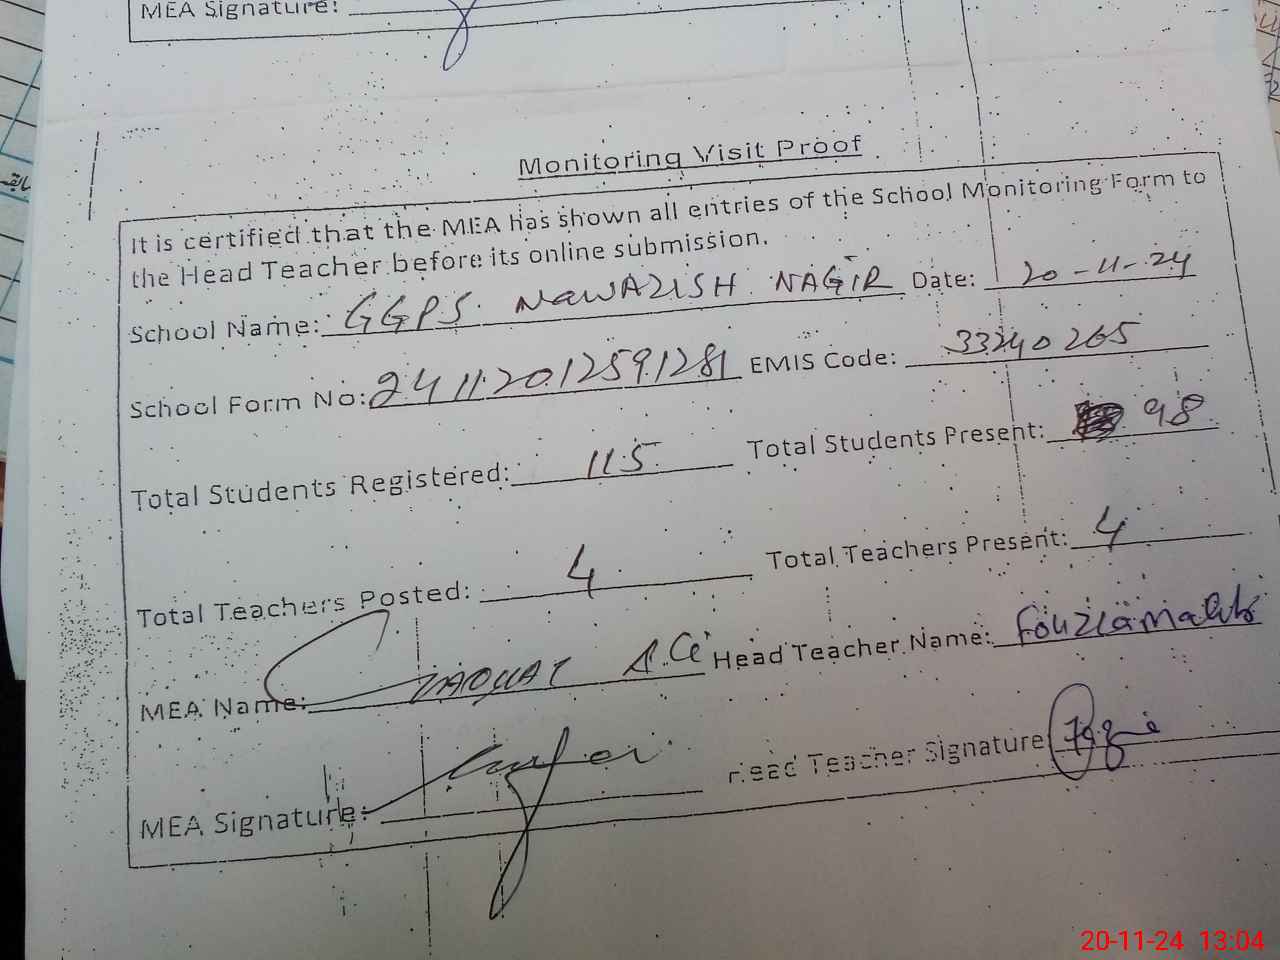 MEA Signature:
Monitoring Visit Proof
It is certified that the MEA has shown all entries of the School Monitoring Form to
the Head Teacher before its online submission.
School Name: GGPS NAWAZISH NAGIR Date: 20-11-24
School Form No: 24112012591281 EMIS Code: 33240265
Total Students Registered: 115 Total Students Present: 98
Total Teachers Posted: 4 Total Teachers Present: 4
MEA Name: Head Teacher Name:
MEA Signature: Head Teacher Signature
20-11-24 13:04